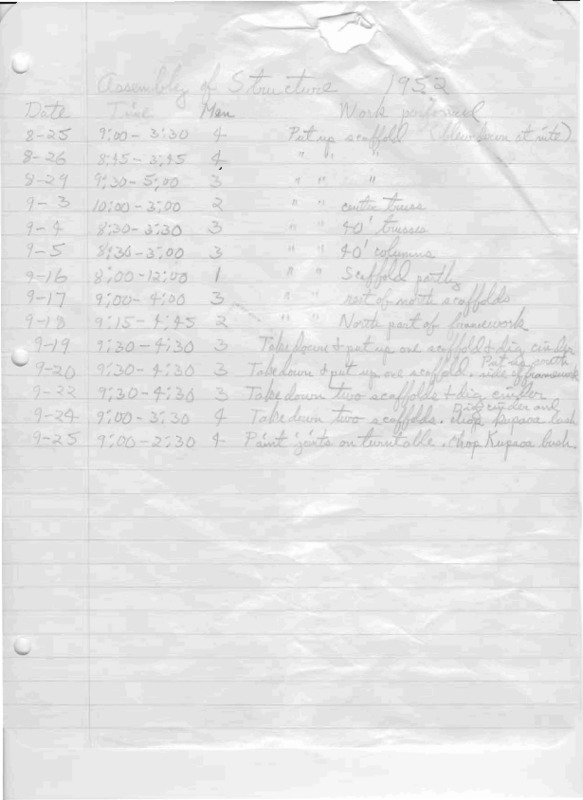 Assembly of Structure 1952
Date Time Men Work performed
8-25 9:00-3:30 4 Put up scaffold (blew down at nite)
8-26 8:45-3:45 4 " " "
8-29 9:30-5:00 3 " " "
9-3 10:00-3:00 2 " " center truss
9-4 8:30-3:30 3 " " 40' trusses
9-5 8:30-3:00 3 " " 40' columns
9-16 8:00-12:00 1 " " Scaffold partly
9-17 9:00-4:00 3 " " rest of north scaffolds
9-18 9:15-4:45 2 " " North part of framework
9-19 9:30-4:30 3 Take down & put up one scaffold & dig cinder
Put up north
9-20 9:30-4:30 3 Take down & put up one scaffold. side of framework
9-22 9:30-4:30 3 Take down two scaffolds & dig cinder
Dig cinder and
9-24 9:00-3:30 4 Take down two scaffolds. chop Kupaoa bush
9-25 9:00-2:30 4 Paint joints on turntable. chop Kupaoa bush.